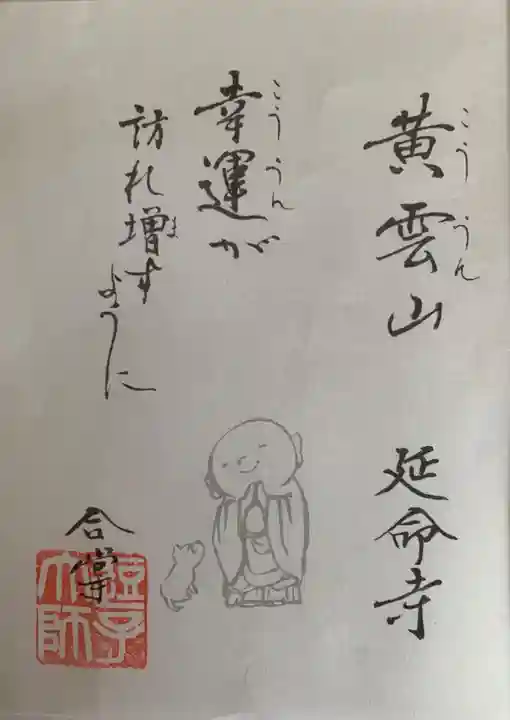 黄雲山 延命寺
こううん
幸運が
こううん
訪れ増すように
ま
合掌